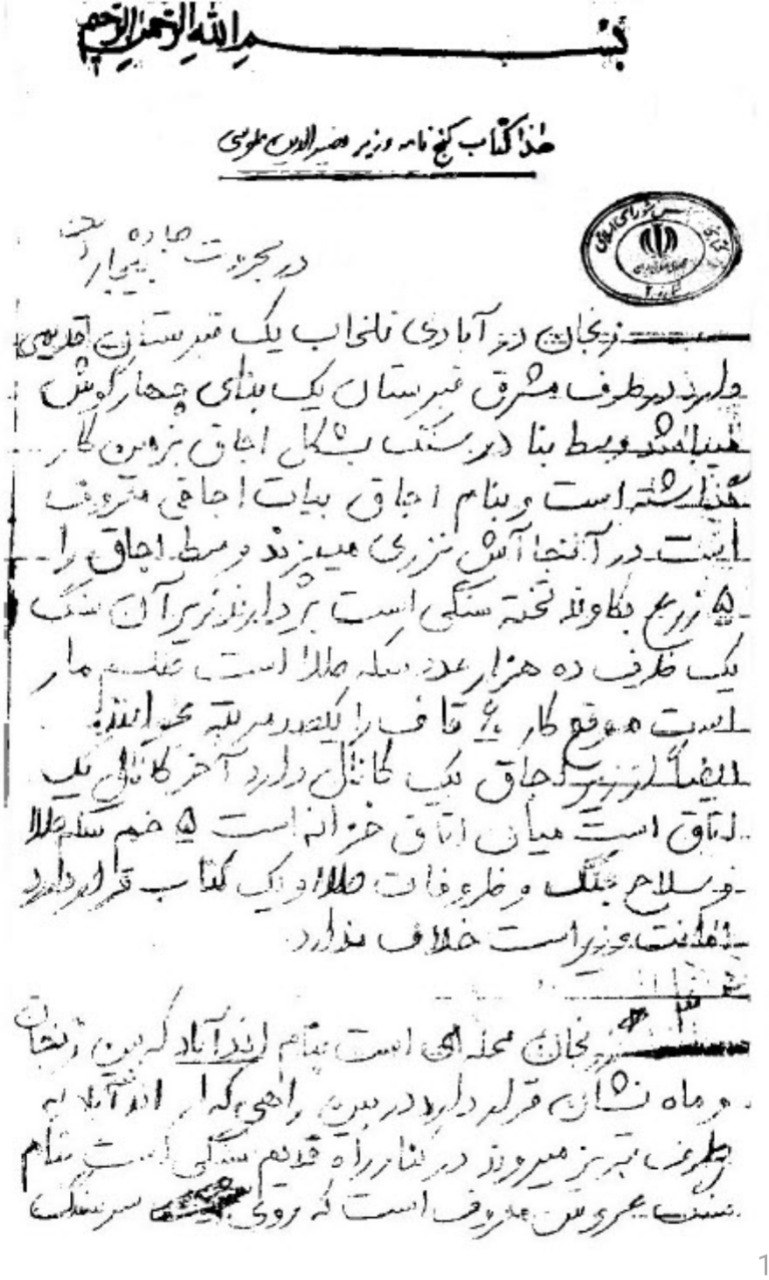 بسم الله الرحمن الرحیم
هذا کتاب گنج نامه وزیر نصیرالدین طوسی
جاده
در
بیجار
زنجان در آبادی تلخاب یک قبرستان قدیمی
دارد در طرف مشرق قبرستان یک بنای چهارگوش
میباشد وسط بنا در سنگ بشکل اجاق بزمین کار
گذاشته است و بنام اجاق بیات اجاقی معروف
است در آنجا آش نزری میپزند وسط اجاق را
۵ زرع بکاوند تخته سنگی است بردارند زیر آن سنگ
یک ظرف ده هزار عدد سکه طلا است طلسم مار
است موقع کار ۶ قاف را یکصد مرتبه بخوانند
ایضاً از زیر اجاق یک کانال دارد آخر کانال یک
اتاق است میان اتاق خزانه است ۵ خم سکه طلا
و سلاح جنگ و ظروفات طلا و یک کتاب قرار دارد
امانت وزیر است خلاف ندارد
۳
زنجان محله ای است بنام اندآباد که بین زنجان
و ماه نشان قرار دارد در بین راهی که از اندآباد به
طرف تبریز میروند در کنار راه قدیم سنگی است بنام
سنگ عروس معروف است که بروی سر سنگ
1